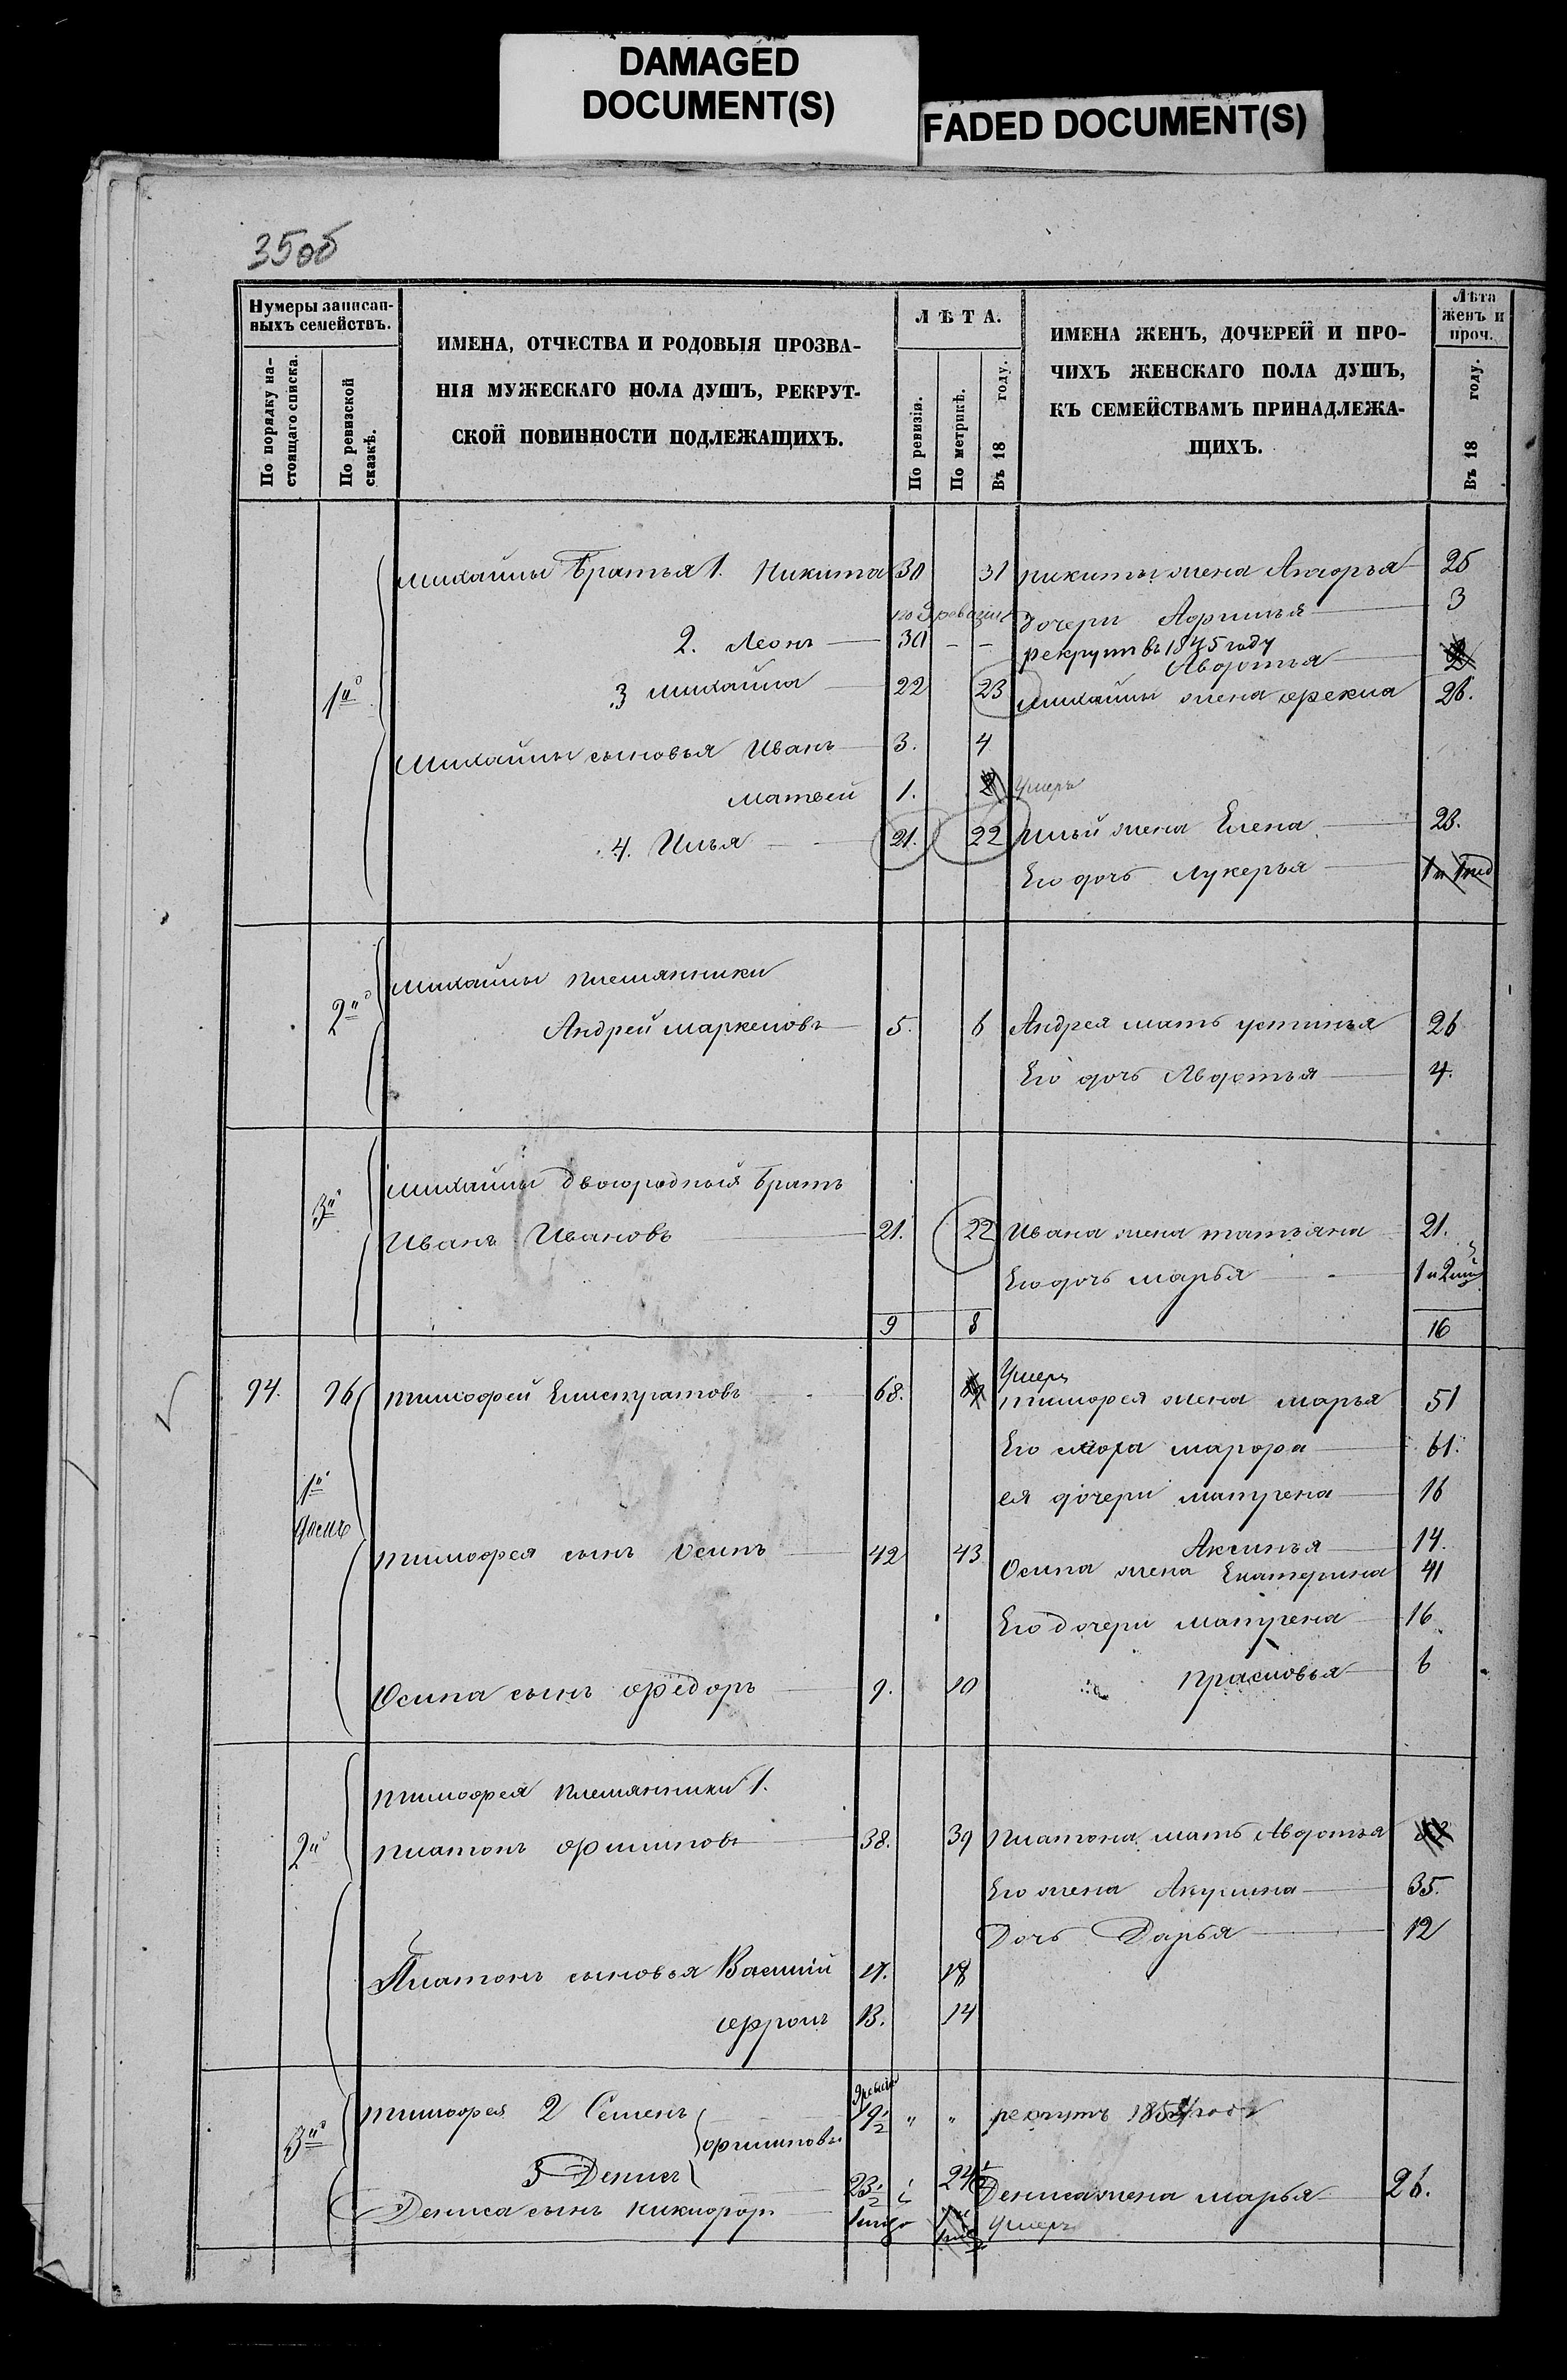 DAMAGED
DOCUMENT(S)
FADED DOCUMENT(S)
35об
Нумеры записан-
ныхъ семействъ.
По порядку на-
стоящаго списка.
По ревизской
сказкѣ.
ИМЕНА, ОТЧЕСТВА И РОДОВЫЯ ПРОЗВА-
НІЯ МУЖЕСКАГО ПОЛА ДУШЪ, РЕКРУТ-
СКОЙ ПОВИННОСТИ ПОДЛЕЖАЩИХЪ.
ЛѢТА.
По ревизіи.
По метрикѣ.
Въ 18 году.
ИМЕНА ЖЕНЪ, ДОЧЕРЕЙ И ПРО-
ЧИХЪ ЖЕНСКАГО ПОЛА ДУШЪ,
КЪ СЕМЕЙСТВАМЪ ПРИНАДЛЕЖА-
ЩИХЪ.
Лѣта
женъ и
проч.
Въ 18 году.
Михайлы братья 1. Никита 30 31 Никиты жена 25
по 9 ревизіи дочери 3
2. Леонъ 30 - - рекрутъ въ 1845 году
Авдотья
1й 3 Михайла 22 23 Михайлы жена Фекла 26.
Михайлы сыновья Иванъ 3. 4
Матвей 1. 2 умеръ
4. Илья 21. 22 Ильи жена Елена 23.
Его дочь Лукерья
Михайлы племянники
2й Андрей Маркеловъ 5. 6 Андрея мать Устинья 26
Его дочь Авдотья 4.
3й Михайлы двоюродный братъ
Иванъ Ивановъ 21. 22 Ивана жена Татьяна 21.
Его дочь Марья
9 8 16
умеръ
94. 96 Тимофей Елистратовъ 68. 69 Тимофея жена Марья 51
Его сноха Марфа 61.
ея дочери Матрена 16
1й
домъ
Аксинья 14.
Тимофея сынъ Осипъ 42 43 Осипа жена Екатерина 41
Его дочери Матрена 16
Прасковья 6
Осипа сынъ Федоръ 9. 10
Тимофея племянники 1.
2й Платонъ Филиповъ 38. 39 Платона мать Авдотья
Его жена Акулина 35.
Дочь Дарья 12
Платона сыновья Василий 17. 18
Ефромъ 13. 14
9 ревизіи
3й Тимофея 2 Семенъ 19½ " " рекрутъ
Филиповы
3 Денисъ 23½ 24½ Дениса жена Марья 26.
Дениса сынъ Никифоръ умеръ